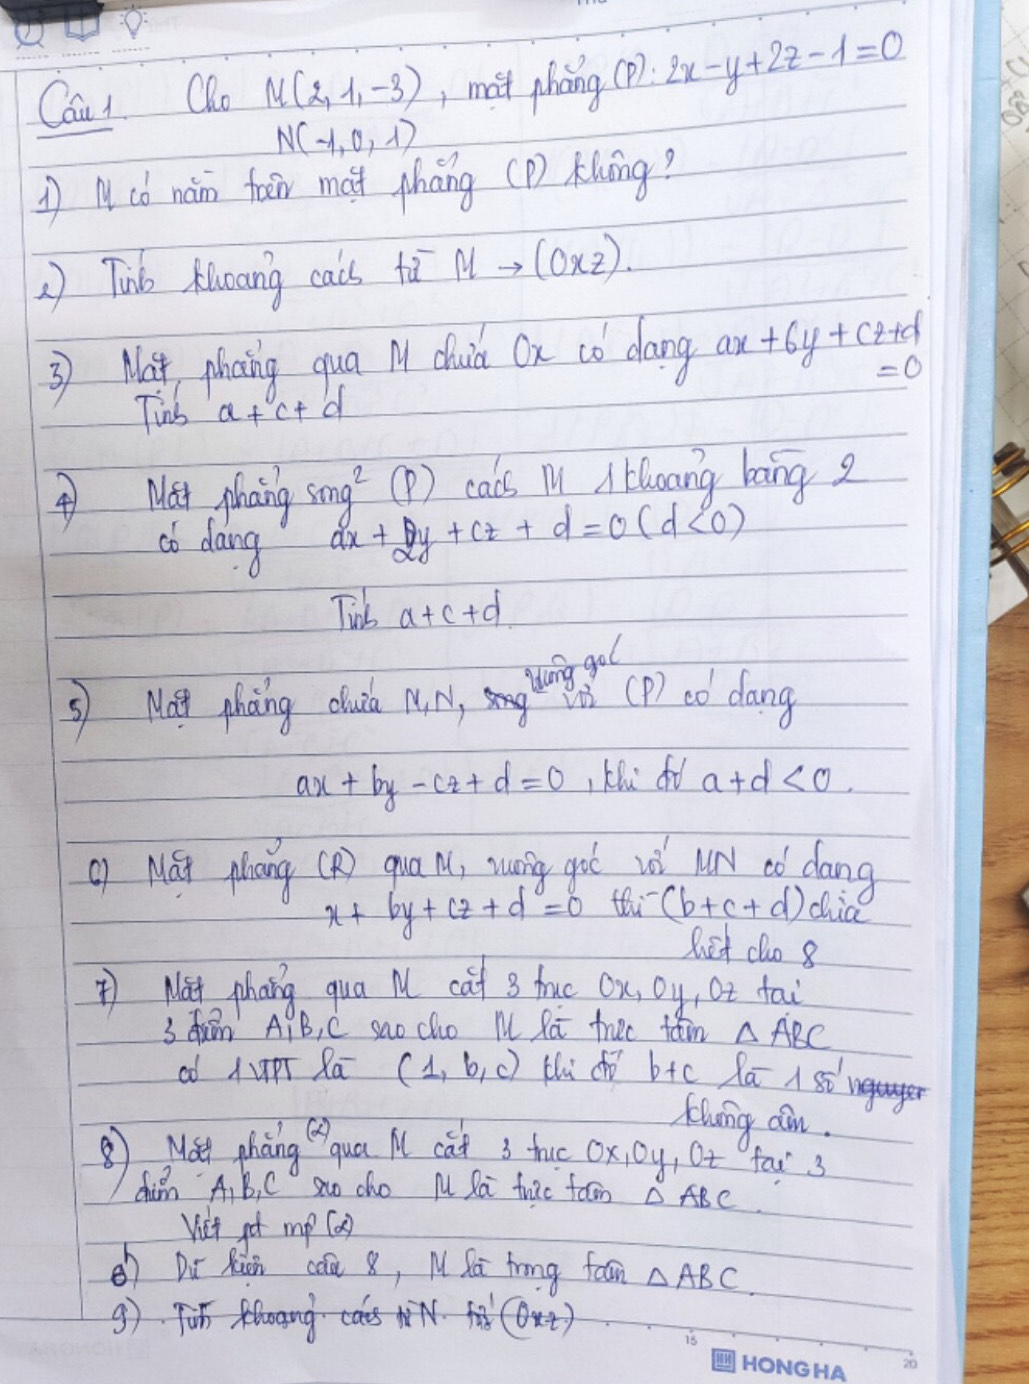 Câu 1. Cho M(2, 1, -3), mặt phẳng (P): 2x - y + 2z - 1 = 0
N(-1, 0, 1)
1) M có nằm trên mặt phẳng (P) không?
2) Tính khoảng cách từ M → (Oxz).
3) Mặt phẳng qua M chứa Ox có dạng ax + by + cz + d
= 0
Tính a + c + d
4) Mặt phẳng song² (P) cách M 1 khoảng bằng 2
có dạng ax + 2y + cz + d = 0 (d < 0)
Tính a + c + d
vuông góc
5) Mặt phẳng chứa M, N, song với (P) có dạng
ax + by - cz + d = 0, khi đó a + d < 0.
6) Mặt phẳng (R) qua M, vuông góc với MN có dạng
x + by + cz + d = 0 thì (b + c + d) chia
hết cho 8
7) Mặt phẳng qua M cắt 3 trục Ox, Oy, Oz tại
3 điểm A, B, C sao cho M là trực tâm △ ABC
có 1 VTPT là (1, b, c) khi đó b + c là 1 số nguyen
không âm.
8) Mặt phẳng (α) qua M cắt 3 trục Ox, Oy, Oz tại 3
điểm A, B, C sao cho M là trực tâm △ ABC.
Viết pt mp (α)
8') Dữ kiện câu 8, M là trọng tâm △ ABC.
9) Tính khoảng cách từ N tới (Oxz)
15
20
HONG HA